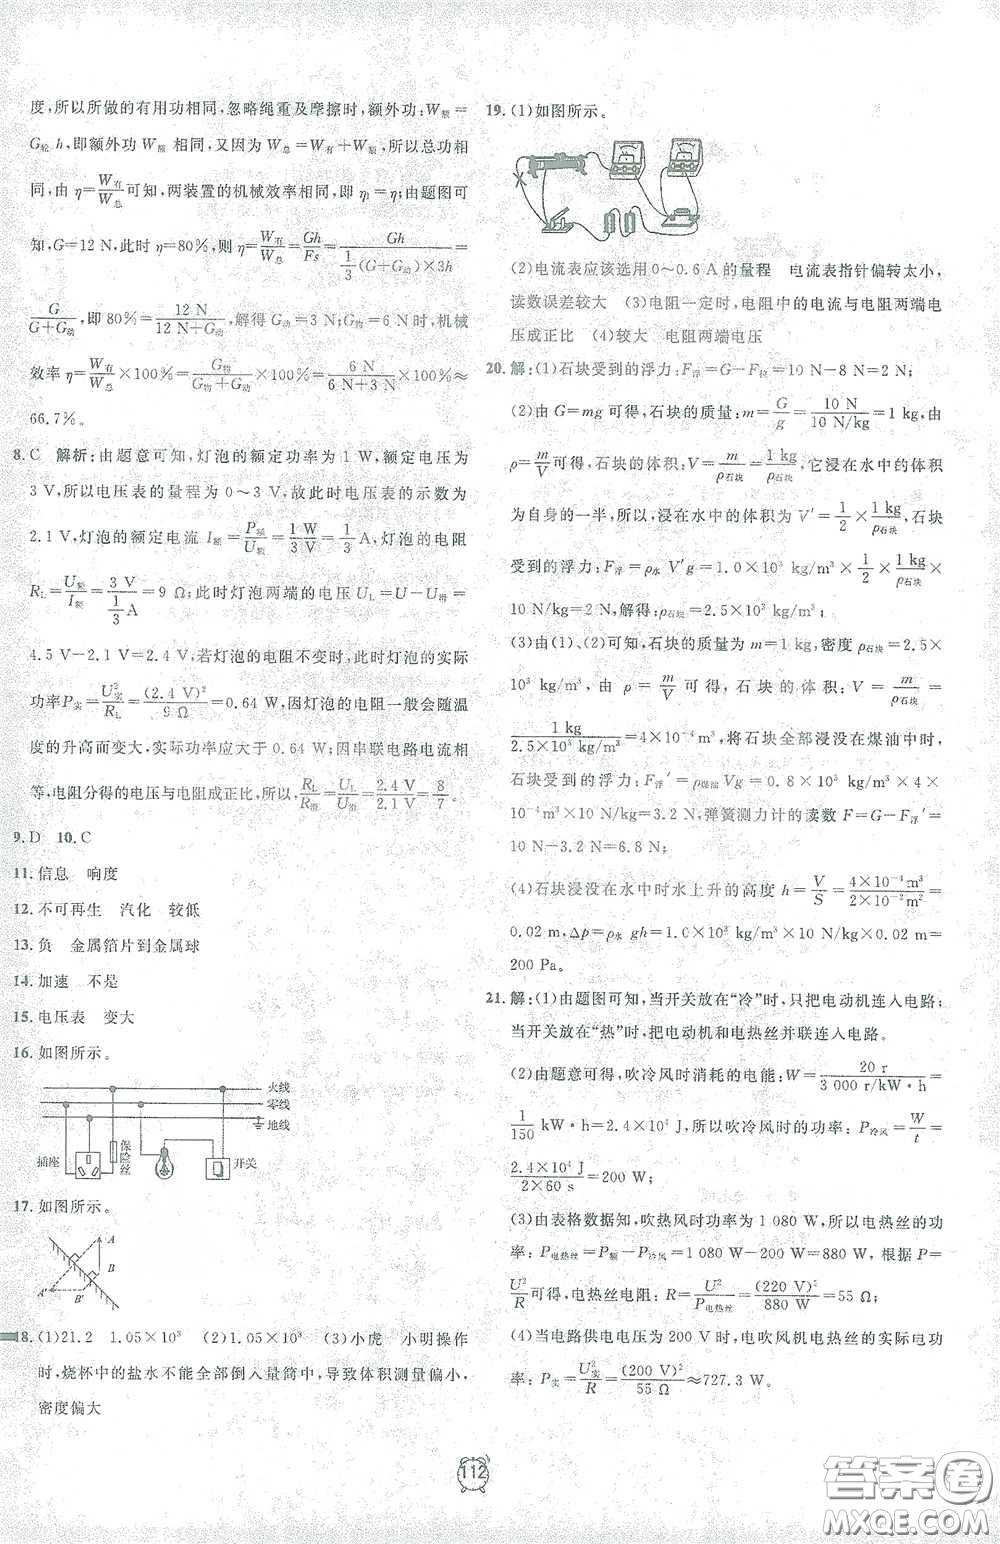 度,所以所做的有用功相同,忽略绳重及摩擦时,额外功:W额=
G轮 h,即额外功 W额 相同,又因为 W总=W有+W额,所以总功相
同,由 η=W有/W总可知,两装置的机械效率相同,即 η₁=η₂;由题图可
知,G=12 N,此时 η=80%,则 η=W有/W总=Gh/Fs=Gh/(1/3(G+G动)×3h)=
G/(G+G动),即 80%=12 N/(12 N+G动),解得 G动=3 N;G物=6 N时,机械
效率 η=W有/W总×100%=G物/(G物+G动)×100%=6 N/(6 N+3 N)×100%≈
66.7%。
8.C 解析:由题意可知,灯泡的额定功率为 1 W,额定电压为
3 V,所以电压表的量程为 0～3 V,故此时电压表的示数为
2.1 V,灯泡的额定电流 I额=P额/U额=1 W/3 V=1/3 A,灯泡的电阻
RL=U额/I额=3 V/(1/3 A)=9 Ω;此时灯泡两端的电压 UL=U-U滑=
4.5 V-2.1 V=2.4 V,若灯泡的电阻不变时,此时灯泡的实际
功率P实=U²L/RL=(2.4 V)²/9 Ω=0.64 W,因灯泡的电阻一般会随温
度的升高而变大,实际功率应大于 0.64 W;因串联电路电流相
等,电阻分得的电压与电阻成正比,所以:RL/R滑=UL/U滑=2.4 V/2.1 V=8/7。
9.D 10.C
11.信息 响度
12.不可再生 汽化 较低
13.负 金属箔片到金属球
14.加速 不是
15.电压表 变大
16.如图所示。
火线
零线
地线
插座
保险丝
开关
17.如图所示。
A
B
A′
B′
18.(1)21.2 1.05×10³ (2)1.05×10³ (3)小虎 小明操作
时,烧杯中的盐水不能全部倒入量筒中,导致体积测量偏小,
密度偏大
19.(1)如图所示。
(2)电流表应该选用 0～0.6 A 的量程 电流表指针偏转太小,
读数误差较大 (3)电阻一定时,电阻中的电流与电阻两端电
压成正比 (4)较大 电阻两端电压
20.解:(1)石块受到的浮力:F浮=G-F拉=10 N-8 N=2 N;
(2)由 G=mg 可得,石块的质量:m=G/g=10 N/10 N/kg=1 kg,由
ρ=m/V可得,石块的体积:V=m/ρ石块=1 kg/ρ石块,它浸在水中的体积
为自身的一半,所以,浸在水中的体积为 V′=1/2×1 kg/ρ石块,石块
受到的浮力:F浮=ρ水 V′g=1.0×10³ kg/m³×1/2×1 kg/ρ石块×
10 N/kg=2 N,解得:ρ石块=2.5×10³ kg/m³;
(3)由(1)、(2)可知,石块的质量为 m=1 kg,密度 ρ石块=2.5×
10³ kg/m³,由 ρ=m/V 可得,石块的体积:V=m/ρ石块=
1 kg/2.5×10³ kg/m³=4×10⁻⁴ m³,将石块全部浸没在煤油中时,
石块受到的浮力:F浮′=ρ煤油 Vg=0.8×10³ kg/m³×4×
10⁻⁴ m³×10 N/kg=3.2 N,弹簧测力计的读数 F=G-F浮′=
10 N-3.2 N=6.8 N;
(4)石块浸没在水中时水上升的高度 h=V/S=4×10⁻⁴ m³/2×10⁻² m²=
0.02 m,Δp=ρ水 gh=1.0×10³ kg/m³×10 N/kg×0.02 m=
200 Pa。
21.解:(1)由题图可知,当开关放在“冷”时,只把电动机连入电路;
当开关放在“热”时,把电动机和电热丝并联连入电路。
(2)由题意可得,吹冷风时消耗的电能:W=20 r/3 000 r/kW·h=
1/150 kW·h=2.4×10⁴ J,所以吹冷风时的功率:P冷风=W/t=
2.4×10⁴ J/2×60 s=200 W;
(3)由表格数据知,吹热风时功率为 1 080 W,所以电热丝的功
率:P电热丝=P额-P冷风=1 080 W-200 W=880 W,根据 P=
U²/R可得,电热丝电阻:R=U²/P电热丝=(220 V)²/880 W=55 Ω;
(4)当电路供电电压为 200 V时,电吹风机电热丝的实际电功
率:P实=U²实/R=(200 V)²/55 Ω≈727.3 W。
112
答案卷
MXQE.COM